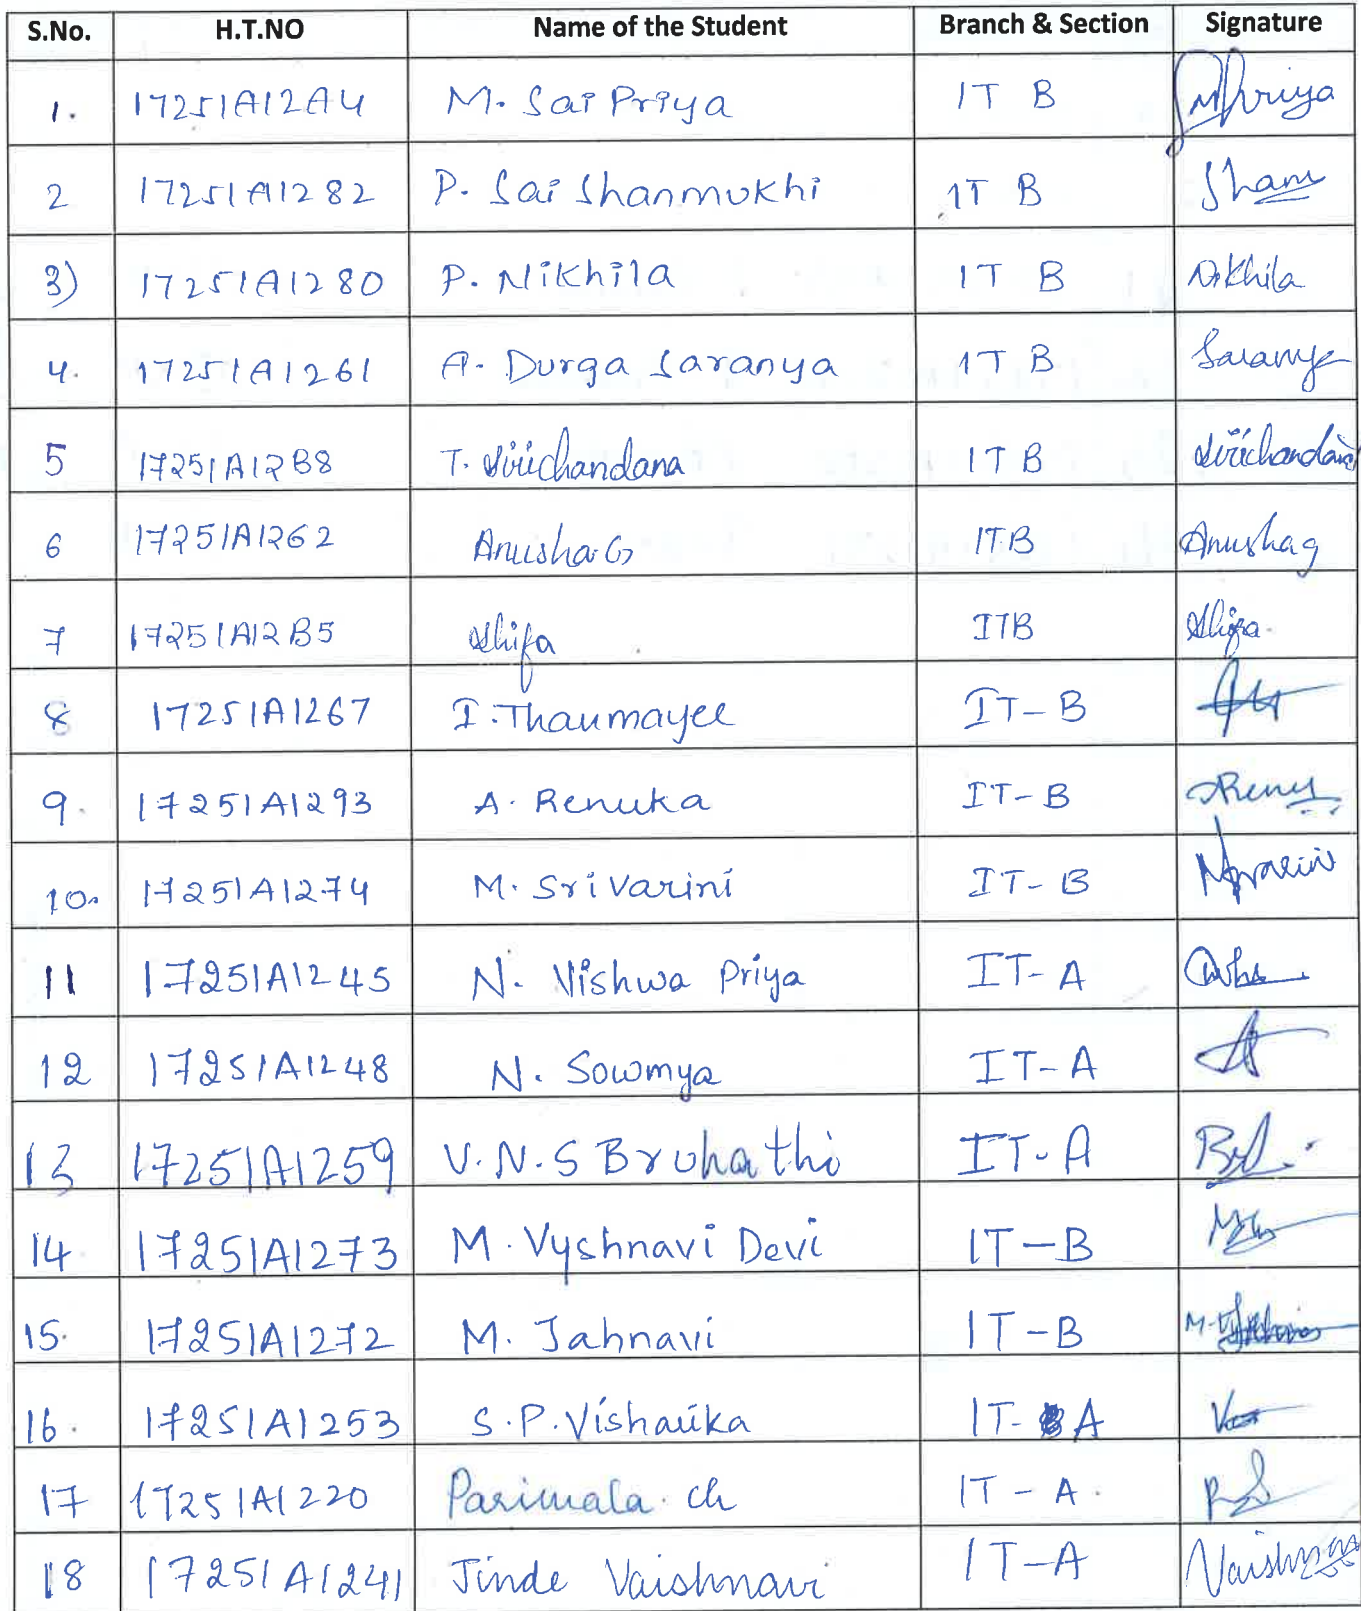 S.No. H.T.NO Name of the Student Branch & Section Signature
1. 17251A12A4 M. Sai Priya IT B
2 17251A1282 P. Sai Shanmukhi IT B Sham
3) 17251A1280 P. Nikhila IT B Nikhila
4. 17251A1261 A. Durga Saranya IT B Saranya
5 17251A12B8 T. Sirichandana IT B Sirichandana
6 17251A1262 Anusha G ITB Anushag
7 17251A12B5 Shifa ITB Shifa
8 17251A1267 I. Thanmayee IT-B
9. 17251A1293 A. Renuka IT-B
10. 17251A1274 M. Sri Varini IT-B
11 17251A1245 N. Vishwa Priya IT-A
12 17251A1248 N. Sowmya IT-A
13 17251A1259 V.N.S Bruhathi IT-A
14 17251A1273 M. Vyshnavi Devi IT-B
15. 17251A1272 M. Jahnavi IT-B
16. 17251A1253 S.P. Vishalika IT-A
17 17251A1220 Parimala ch IT-A.
18 17251A1241 Jinde Vaishnavi IT-A